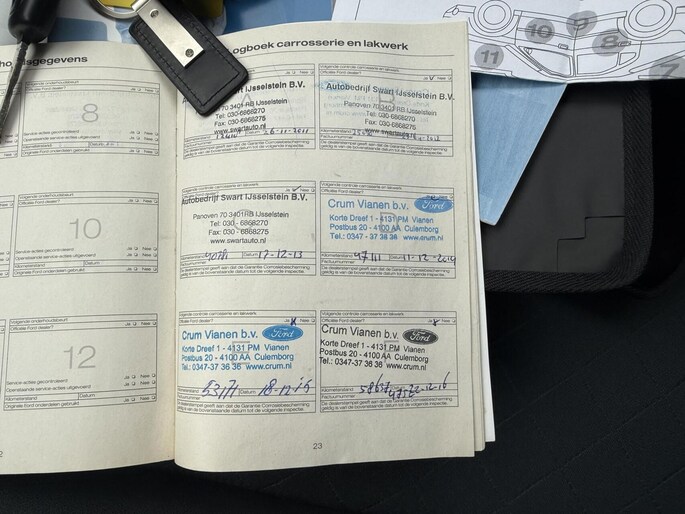 Logboek carrosserie en lakwerk
8
Service-acties gecontroleerd Ja Nee
Openstaande service-acties uitgevoerd Ja Nee
Kilometerstand Datum
Originele Ford onderdelen gebruikt Ja Nee
Volgende onderhoudsbeurt
Officiële Ford dealer? Ja Nee
10
Service-acties gecontroleerd Ja Nee
Openstaande service-acties uitgevoerd Ja Nee
Kilometerstand Datum
Factuurnummer
Originele Ford onderdelen gebruikt Ja Nee
Volgende onderhoudsbeurt
Officiële Ford dealer? Ja Nee
12
Service-acties gecontroleerd Ja Nee
Openstaande service-acties uitgevoerd Ja Nee
Kilometerstand Datum
Factuurnummer
Originele Ford onderdelen gebruikt Ja Nee
Ja Nee
Swart IJsselstein B.V.
70 3401 RB IJsselstein
Tel: 030-6868275
Fax: 030-6868277
www.swartauto.nl
26-11-2011
Factuurnummer
De dealerstempel geeft aan dat de Garantie Corrosiebescherming
geldig is van bovenstaande datum tot de volgende inspectie.
Volgende controle carrosserie en lakwerk
Officiële Ford dealer? Ja Nee
Autobedrijf Swart IJsselstein B.V.
Panoven 70 3401 RB IJsselstein
Tel: 030-6868275
Fax: 030-6868277
www.swartauto.nl
Kilometerstand
Factuurnummer
De dealerstempel geeft aan dat de Garantie Corrosiebescherming
geldig is van bovenstaande datum tot de volgende inspectie.
Volgende controle carrosserie en lakwerk
Officiële Ford dealer? Ja Nee
Autobedrijf Swart IJsselstein B.V.
Panoven 70 3401 RB IJsselstein
Tel: 030-6868275
Fax: 030-6868277
www.swartauto.nl
Kilometerstand Datum 17-12-13
Factuurnummer
De dealerstempel geeft aan dat de Garantie Corrosiebescherming
geldig is van bovenstaande datum tot de volgende inspectie.
Volgende controle carrosserie en lakwerk
Officiële Ford dealer? Ja Nee
Crum Vianen b.v. Ford
Korte Dreef 1 - 4131 PM Vianen
Postbus 20 - 4100 AA Culemborg
Tel.: 0347 - 37 36 36 www.crum.nl
Kilometerstand 47111 Datum 11-12-2014
Factuurnummer
De dealerstempel geeft aan dat de Garantie Corrosiebescherming
geldig is van bovenstaande datum tot de volgende inspectie.
Volgende controle carrosserie en lakwerk
Officiële Ford dealer? Ja Nee
Crum Vianen b.v. Ford
Korte Dreef 1 - 4131 PM Vianen
Postbus 20 - 4100 AA Culemborg
Tel.:0347-37 36 36 www.crum.nl
Kilometerstand 53171 Datum 18-12-15
Factuurnummer
De dealerstempel geeft aan dat de Garantie Corrosiebescherming
geldig is van bovenstaande datum tot de volgende inspectie.
Volgende controle carrosserie en lakwerk
Officiële Ford dealer? Ja Nee
Crum Vianen b.v. Ford
Korte Dreef 1 - 4131 PM Vianen
Postbus 20 - 4100 AA Culemborg
Tel.:0347-37 36 36 www.crum.nl
Kilometerstand
Factuurnummer
De dealerstempel geeft aan dat de Garantie Corrosiebescherming
geldig is van bovenstaande datum tot de volgende inspectie.
23
11
10
9
8
7